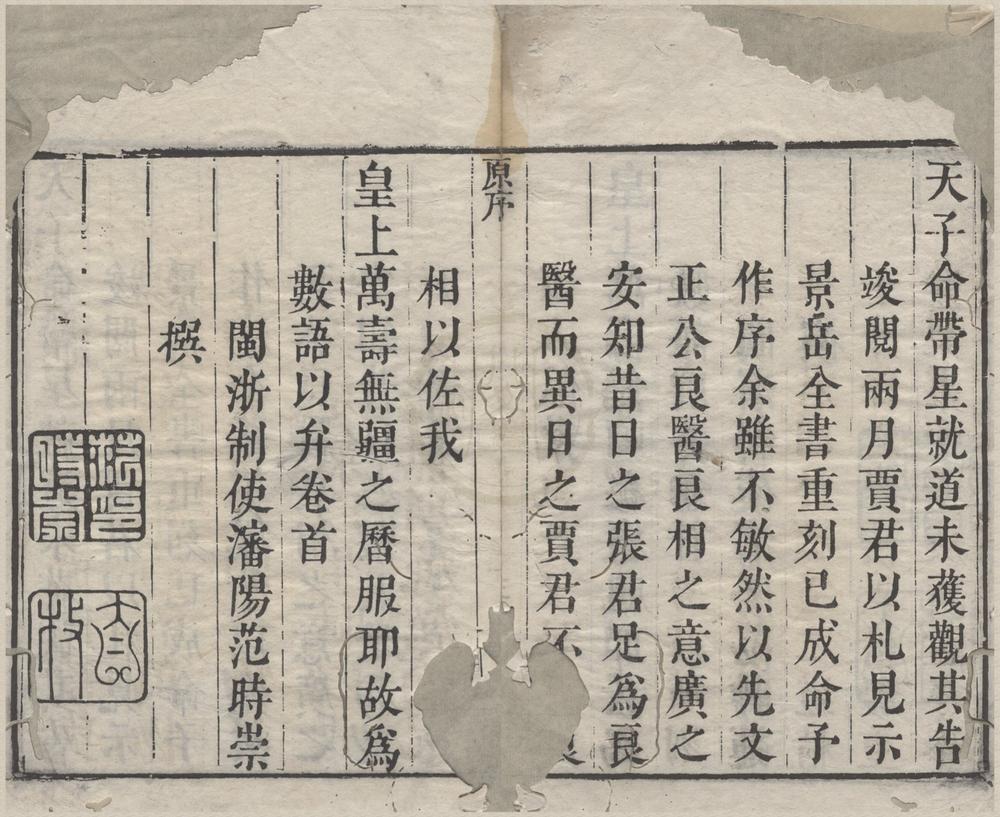 天子命帶星就道未獲觀其告
竣閱兩月賈君以札見示
景岳全書重刻已成命予
作序余雖不敏然以先文
正公良醫良相之意廣之
安知昔日之張君足爲良
醫而異日之賈君不
原序
相以佐我
皇上萬壽無疆之曆服耶故爲
數語以弁卷首
閩浙制使瀋陽范時崇
撰
范印
時崇